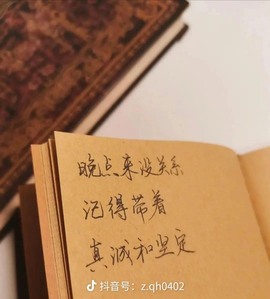 晚点来没关系
记得带着
真诚和坚定
抖音号：z.qh0402